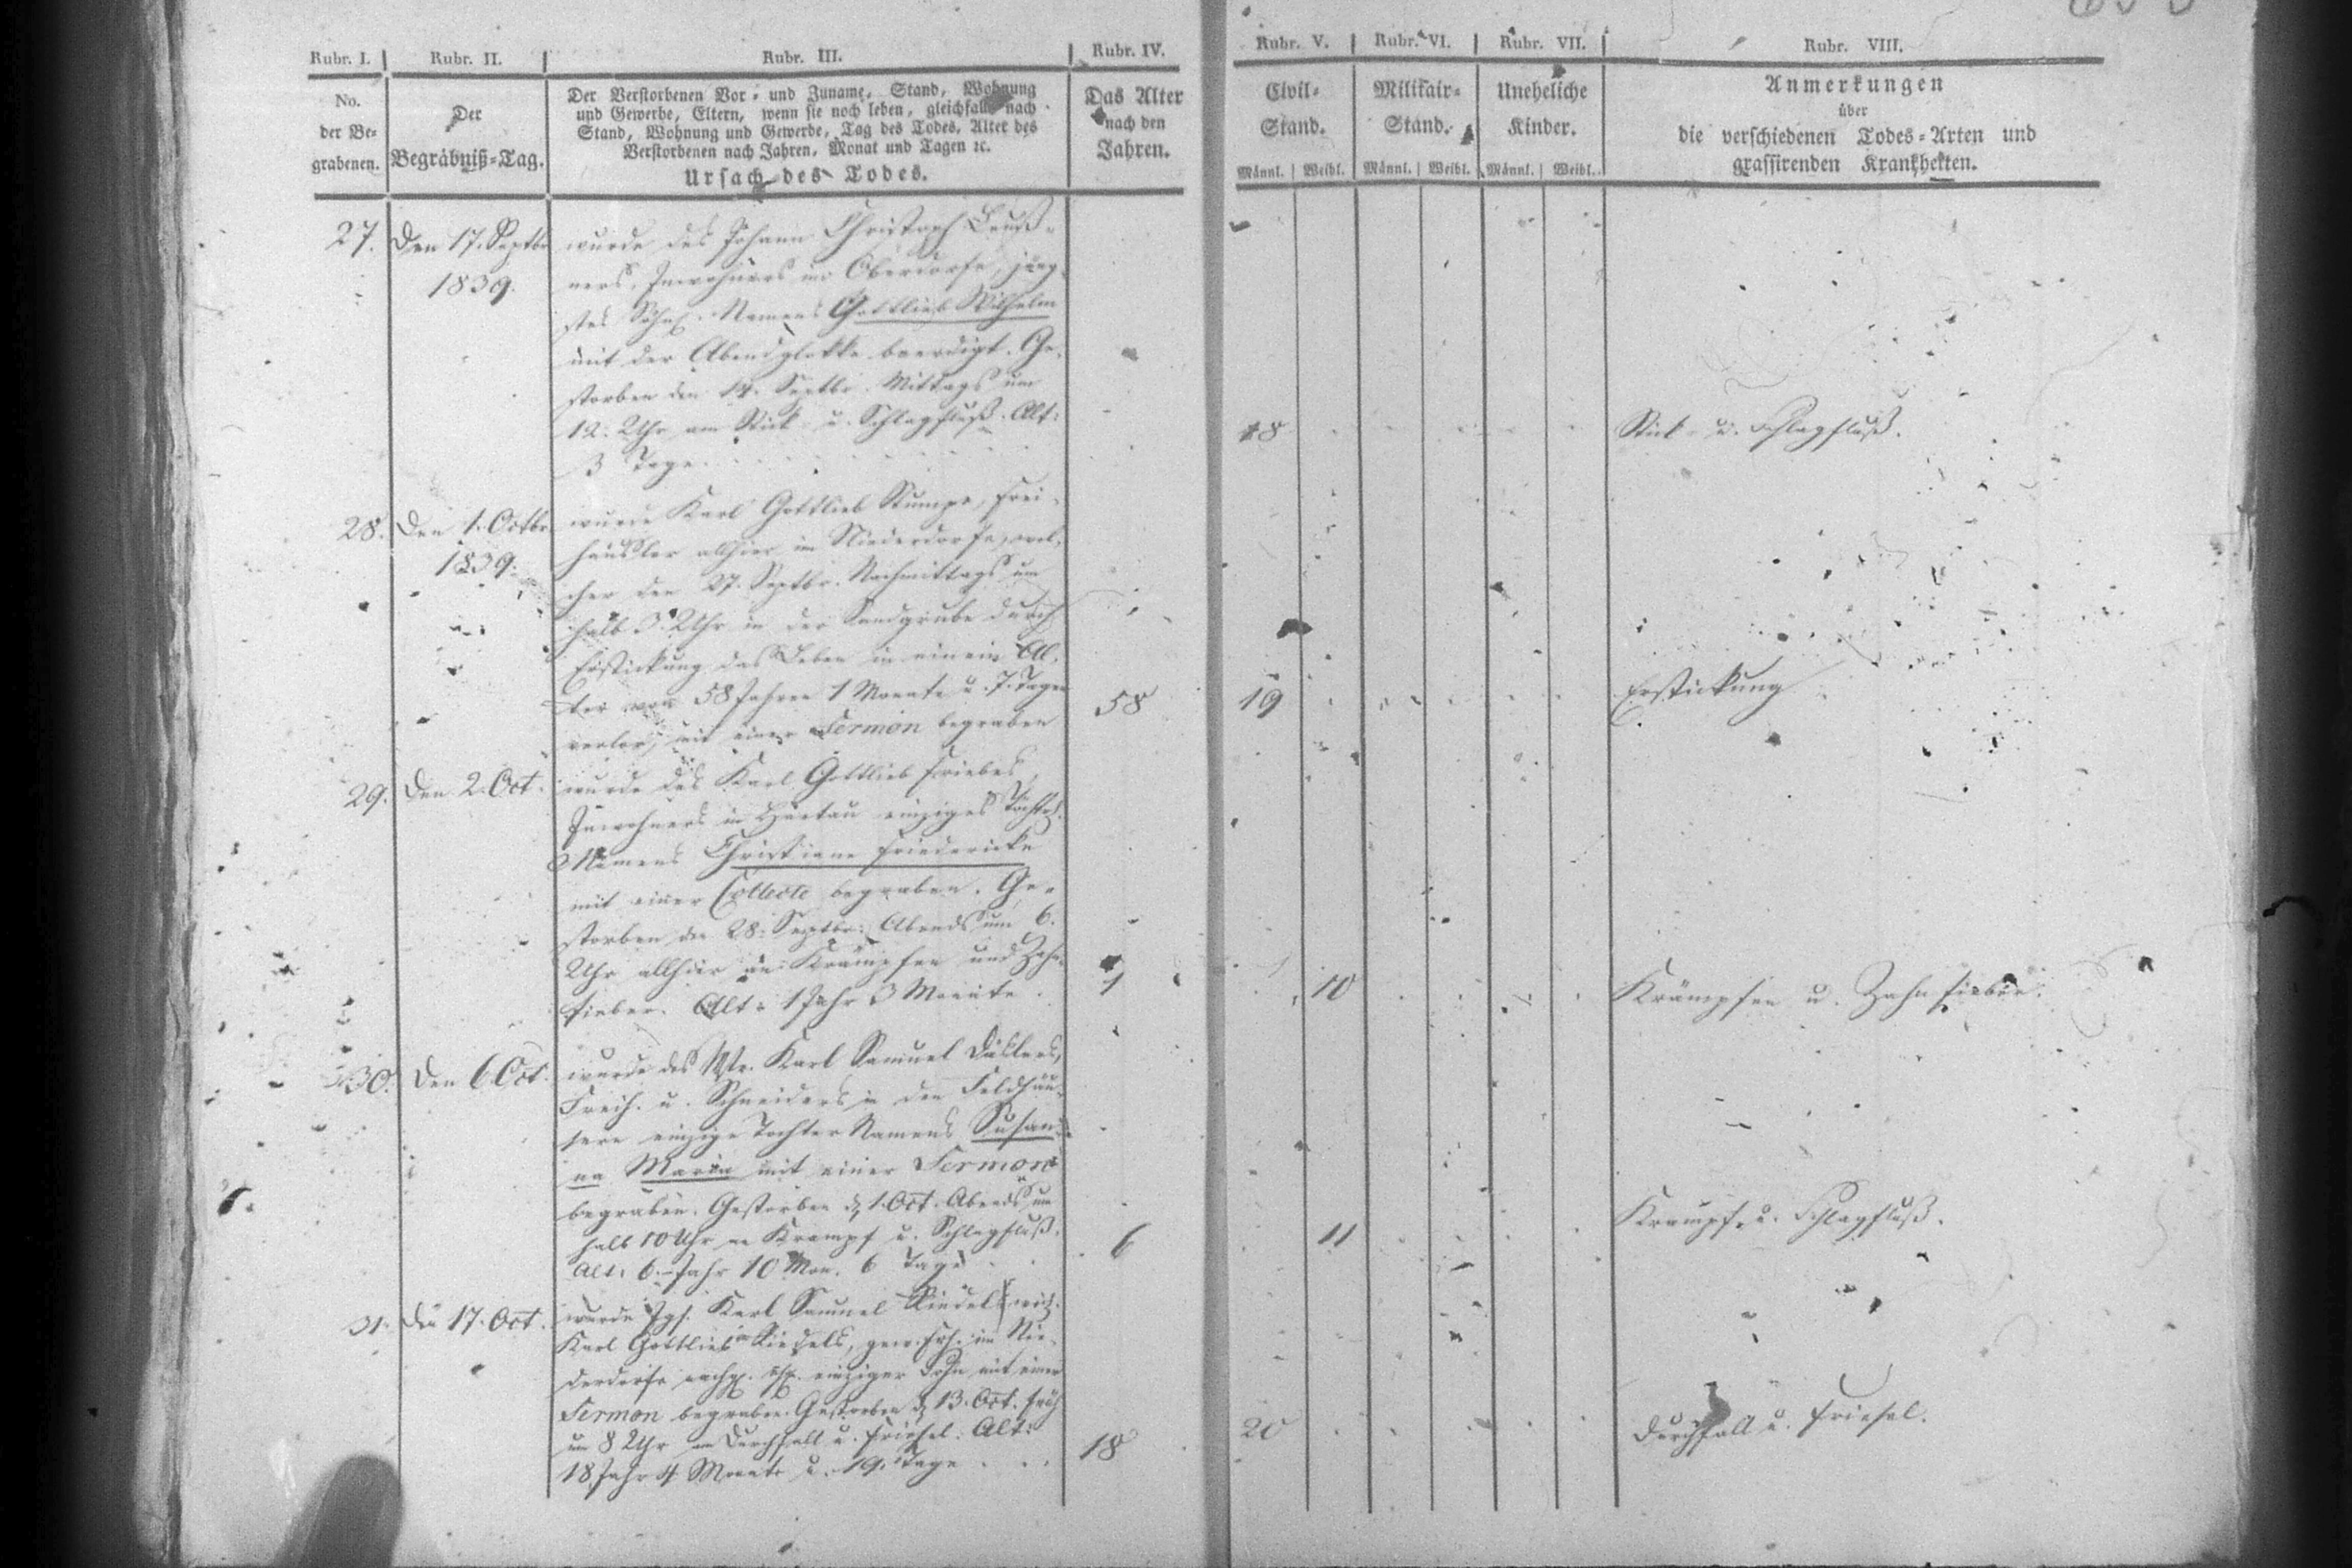 Rubr. I. Rubr. II. Rubr. III. Rubr. IV. Rubr. V. Rubr. VI. Rubr. VII. Rubr. VIII.
No.
der Be-
grabenen.
Der
Begräbniß-Tag.
Der Verstorbenen Vor- und Zuname, Stand, Wohnung
und Gewerbe, Eltern, wenn sie noch leben, gleichfalls nach
Stand, Wohnung und Gewerbe, Tag des Todes, Alter des
Verstorbenen nach Jahren, Monat und Tagen ꝛc.
Ursach des Todes.
Das Alter
nach den
Jahren.
Civil-
Stand.
Männl. Weibl.
Militair-
Stand.
Männl. Weibl.
Uneheliche
Kinder.
Männl. Weibl.
Anmerkungen
über
die verschiedenen Todes-Arten und
grassirenden Krankheiten.
27. Den 17. Septbr
1839.
wurde des Johann Christoph
ners, Inwohners im Oberdorfe, jüng-
stes Söhnl. Namens Gottlieb Wilhelm
mit der Abendglokke beerdigt. Ge-
storben den 14. Septbr. Mittags um
12. Uhr am Stick- u. Schlagfluß. Alt:
3 Tage.
18
Stick- u. Schlagfluß.
28. Den 1. Octbr
1839.
wurde Karl Gottlieb Stumpe, Frei-
häusler allhier im Niederdorfe, wel-
cher den 27. Septbr. Nachmittags um
halb 3. Uhr in der Sandgrube durch
Erstickung das Leben in einem Al-
ter von 58 Jahren 1 Monate u. 7. Tagen
verlor, mit einer Sermon begraben
58 19
Erstickung
29. Den 2. Oct.
wurde des Karl Gottlieb Friebes,
Inwohners in Hartau einziges Töchterl.
Namens Christiane Friedericke
mit einer Collecte begraben. Ge-
storben den 28. Septbr. Abends um 6.
Uhr allhier an Krämpfen und Zahn-
fieber. Alt: 1 Jahr 3 Monate.
1 10
Krämpfen u. Zahnfieber.
30. Den 6. Oct.
wurde des Mstr. Karl Samuel
Freih. u. Schneiders in den Feldhäu-
sern einzige Tochter Namens Susan-
na Maria mit einer Sermon
begraben. Gestorben d. 1. Oct. Abends um
halb 10 Uhr an Krampf u. Schlagfluß.
Alt: 6. Jahr 10 Mon. 6 Tage
6 11
Krampf- u. Schlagfluß.
31. Den 17. Oct.
wurde Jgs. Karl Samuel Riedel,
Karl Gottlieb Riedels, gew. Frh. im Nie-
derdorfe einziger Sohn mit einer
Sermon begraben. Gestorben d. 13. Oct. früh
um 8 Uhr an Durchfall u. Friesel. Alt:
18. Jahr 4 Monate u. 19. Tage
18 20
Durchfall u. Friesel.